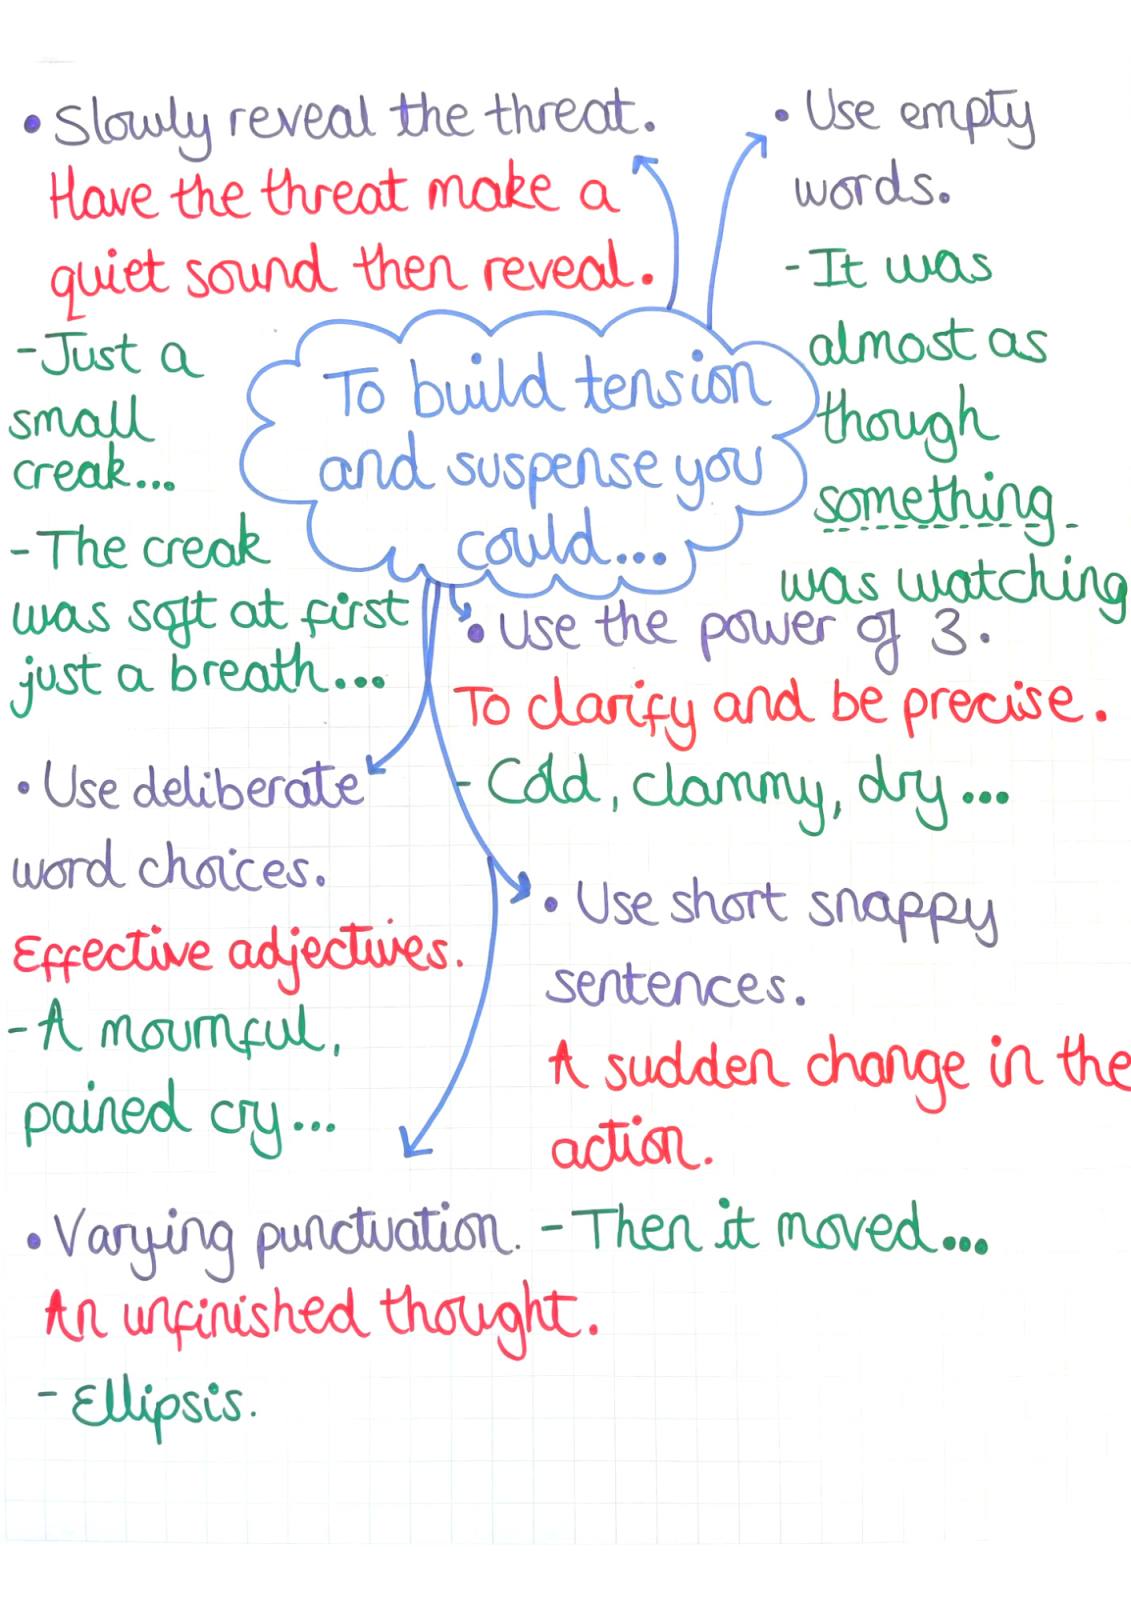 • Slowly reveal the threat.
Have the threat make a
quiet sound then reveal.
- Just a
small
creak...
- The creak
was soft at first
just a breath...
• Use empty
words.
- It was
almost as
though
something
was watching
To build tension
and suspense you
could...
• Use the power of 3.
To clarify and be precise.
- Cold, clammy, dry...
• Use deliberate
word choices.
Effective adjectives.
- A mournful,
pained cry...
• Use short snappy
sentences.
A sudden change in the
action.
- Then it moved...
• Varying punctuation.
An unfinished thought.
- Ellipsis.